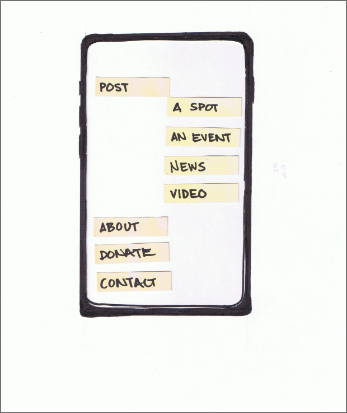 POST
A SPOT
AN EVENT
NEWS
VIDEO
ABOUT
DONATE
CONTACT